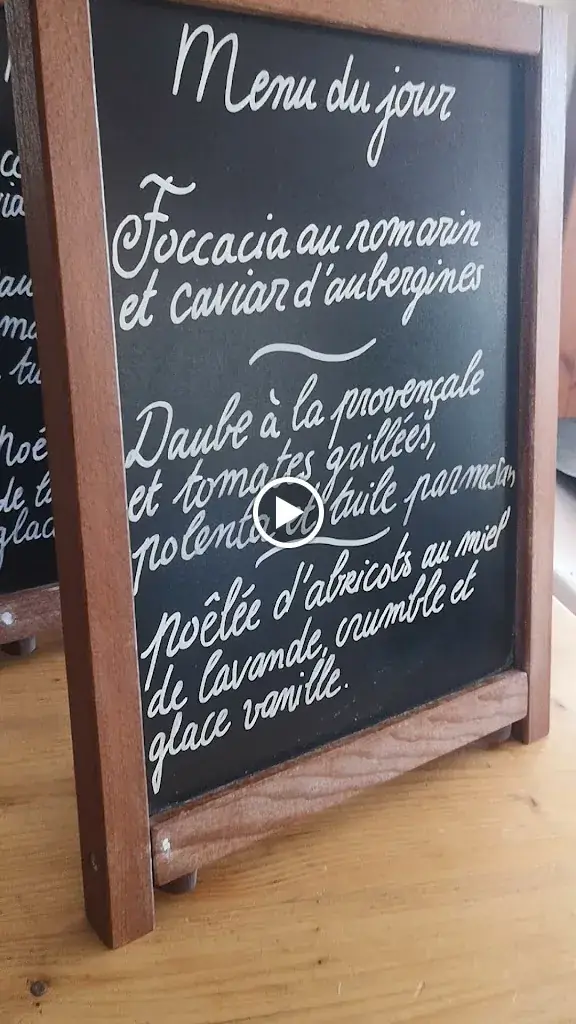 Menu du jour
Foccacia au romarin
et caviar d'aubergines
Daube à la provençale
et tomates grillées,
polenta et tuile parmesan
poêlée d'abricots au miel
de lavande, crumble et
glace vanille.